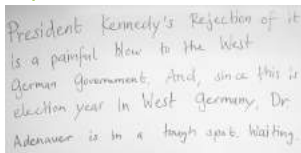 President Kennedy's Rejection of it
is a painful blow to the West
German Government. And, since this is
election year in West Germany, Dr.
Adenauer is in a tough spot. Waiting